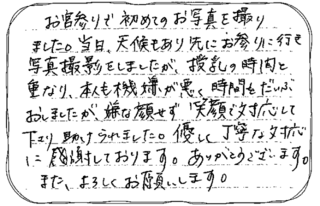 お宮参りで初めてのお写真を撮り
ました。当日、天候もあり先にお参りに行き
写真撮影をしましたが、授乳の時間と
重なり、本人も機嫌が悪く時間もだいぶ
おしましたが、嫌な顔せず笑顔で対応して
下さり助けられました。優しく丁寧な対応
に感謝しております。ありがとうございます。
また、よろしくお願いします。